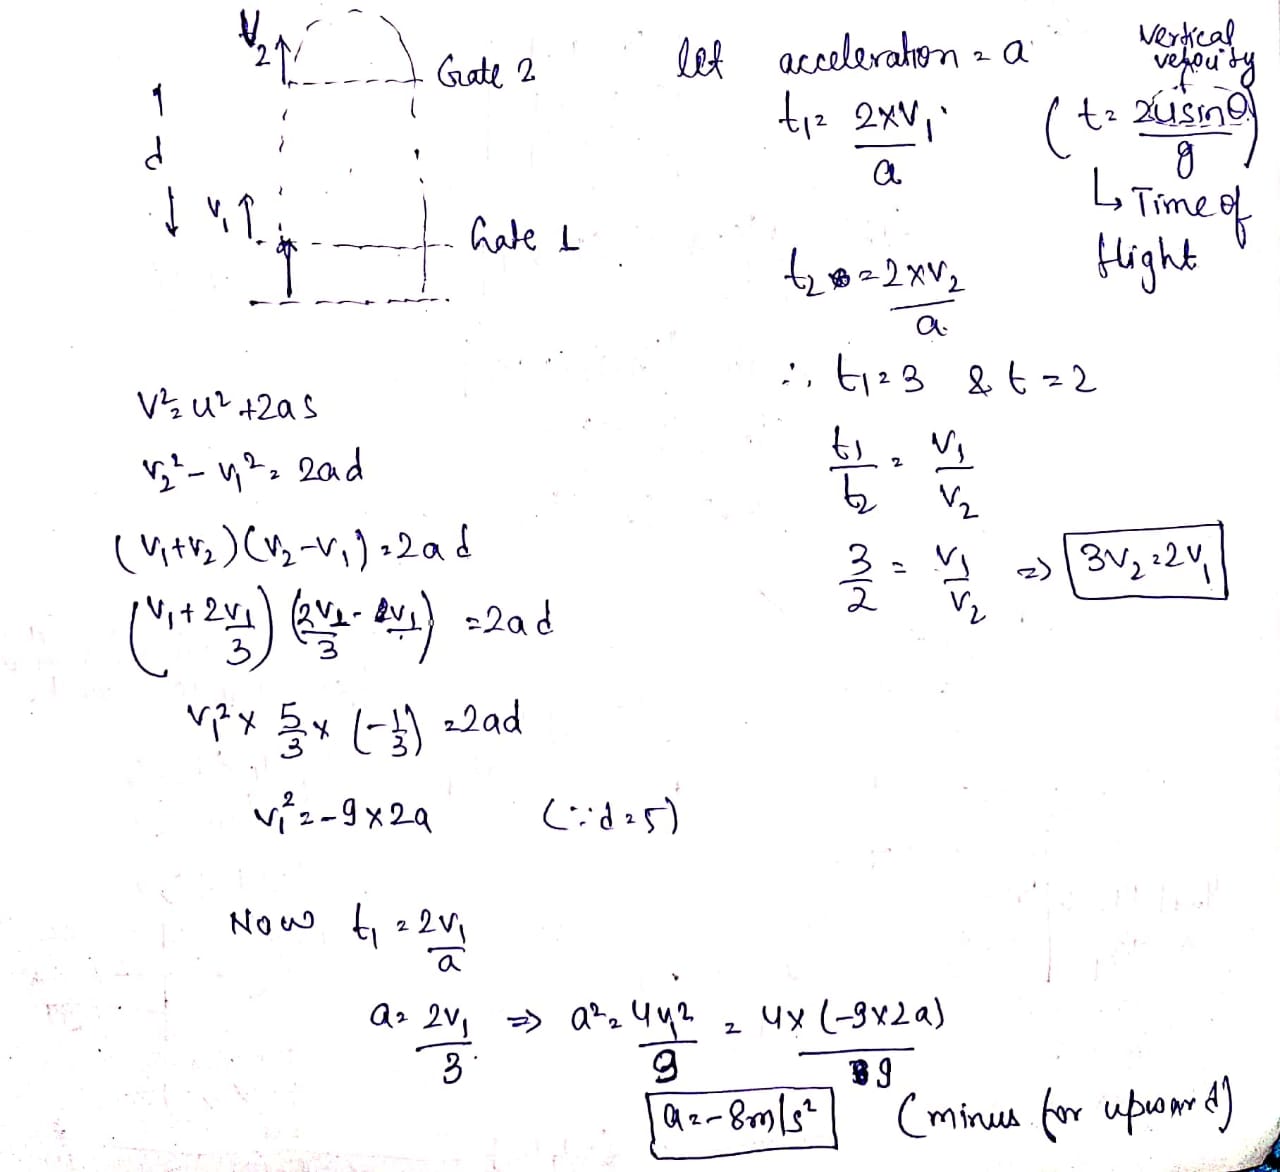 V₂ ↑ Gate 2
↑
d
↓ V₁ ↑ Gate 1
let acceleration = a
t₁ = 2×V₁ / a
vertical velocity
(t = 2usinθ / g)
↳ Time of flight
t₂ = 2×V₂ / a
∴ t₁ = 3 & t = 2
t₁ / t₂ = V₁ / V₂
3 / 2 = V₁ / V₂ ⇒ 3V₂ = 2V₁
V² = u² + 2as
V₂² - V₁² = 2ad
(V₁+V₂)(V₂-V₁) = 2ad
(V₁ + 2V₁/3) (2V₁/3 - V₁) = 2ad
V₁² × 5/3 × (-1/3) = 2ad
V₁² = -9×2a (∵ d = 5)
Now t₁ = 2V₁ / a
a = 2V₁ / 3 ⇒ a² = 4V₁² / 9 = 4×(-9×2a) / 9
a = -8m/s² (minus for upward)